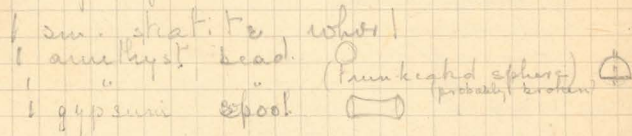 1 sm. steatite whorl
1 amethyst bead.
1 " " (Trunkeated sphere)
(probably broken)
1 gypsum spool